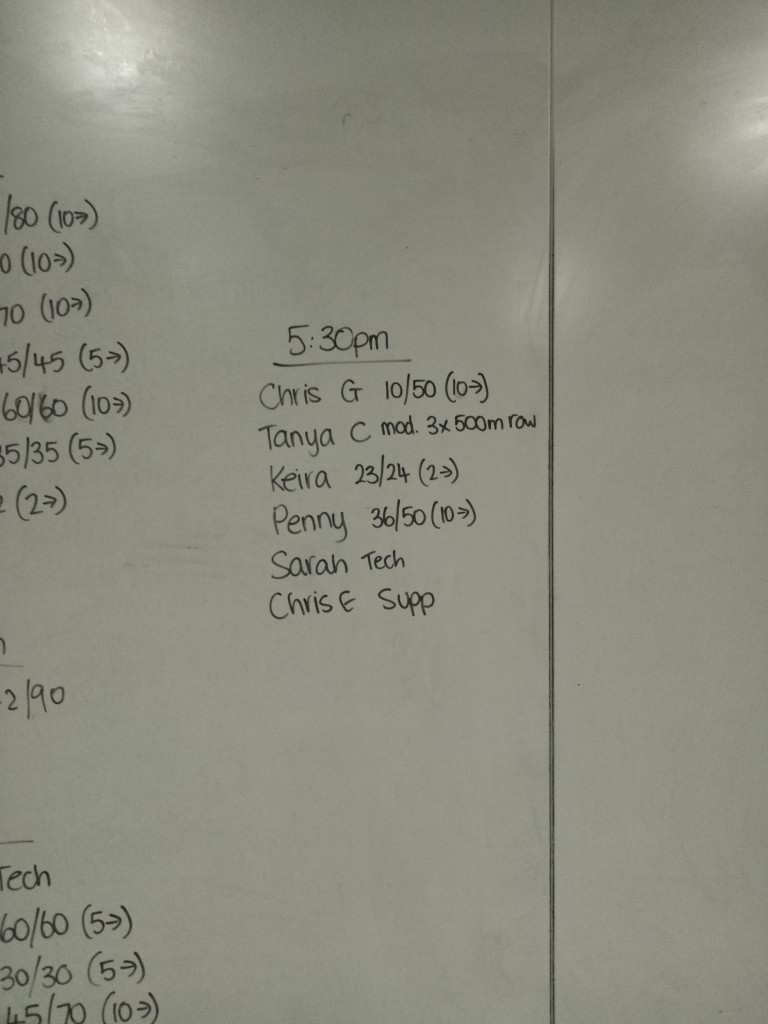 /80 (10→)
0 (10→)
70 (10→)
45/45 (5→)
60/60 (10→)
35/35 (5→)
2 (2→)
2/90
Tech
60/60 (5→)
30/30 (5→)
45/70 (10→)
5:30pm
Chris G 10/50 (10→)
Tanya C mod. 3x500m row
Keira 23/24 (2→)
Penny 36/50 (10→)
Sarah Tech
Chris E Supp